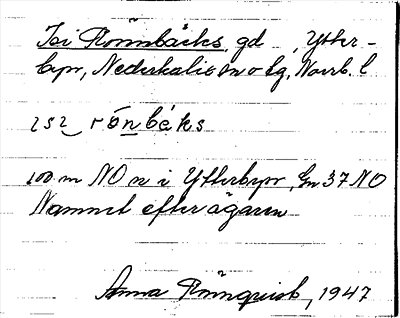 Isi Rönnbäcks, gd, Ytter-
byn, Nederkalix sn o tg, Norrb. l
ɪsɪ rönbéks
100 m NO n i Ytterbyn, Gn 37 NO
Namnet efter ägaren
Anna Rönnquist, 1947